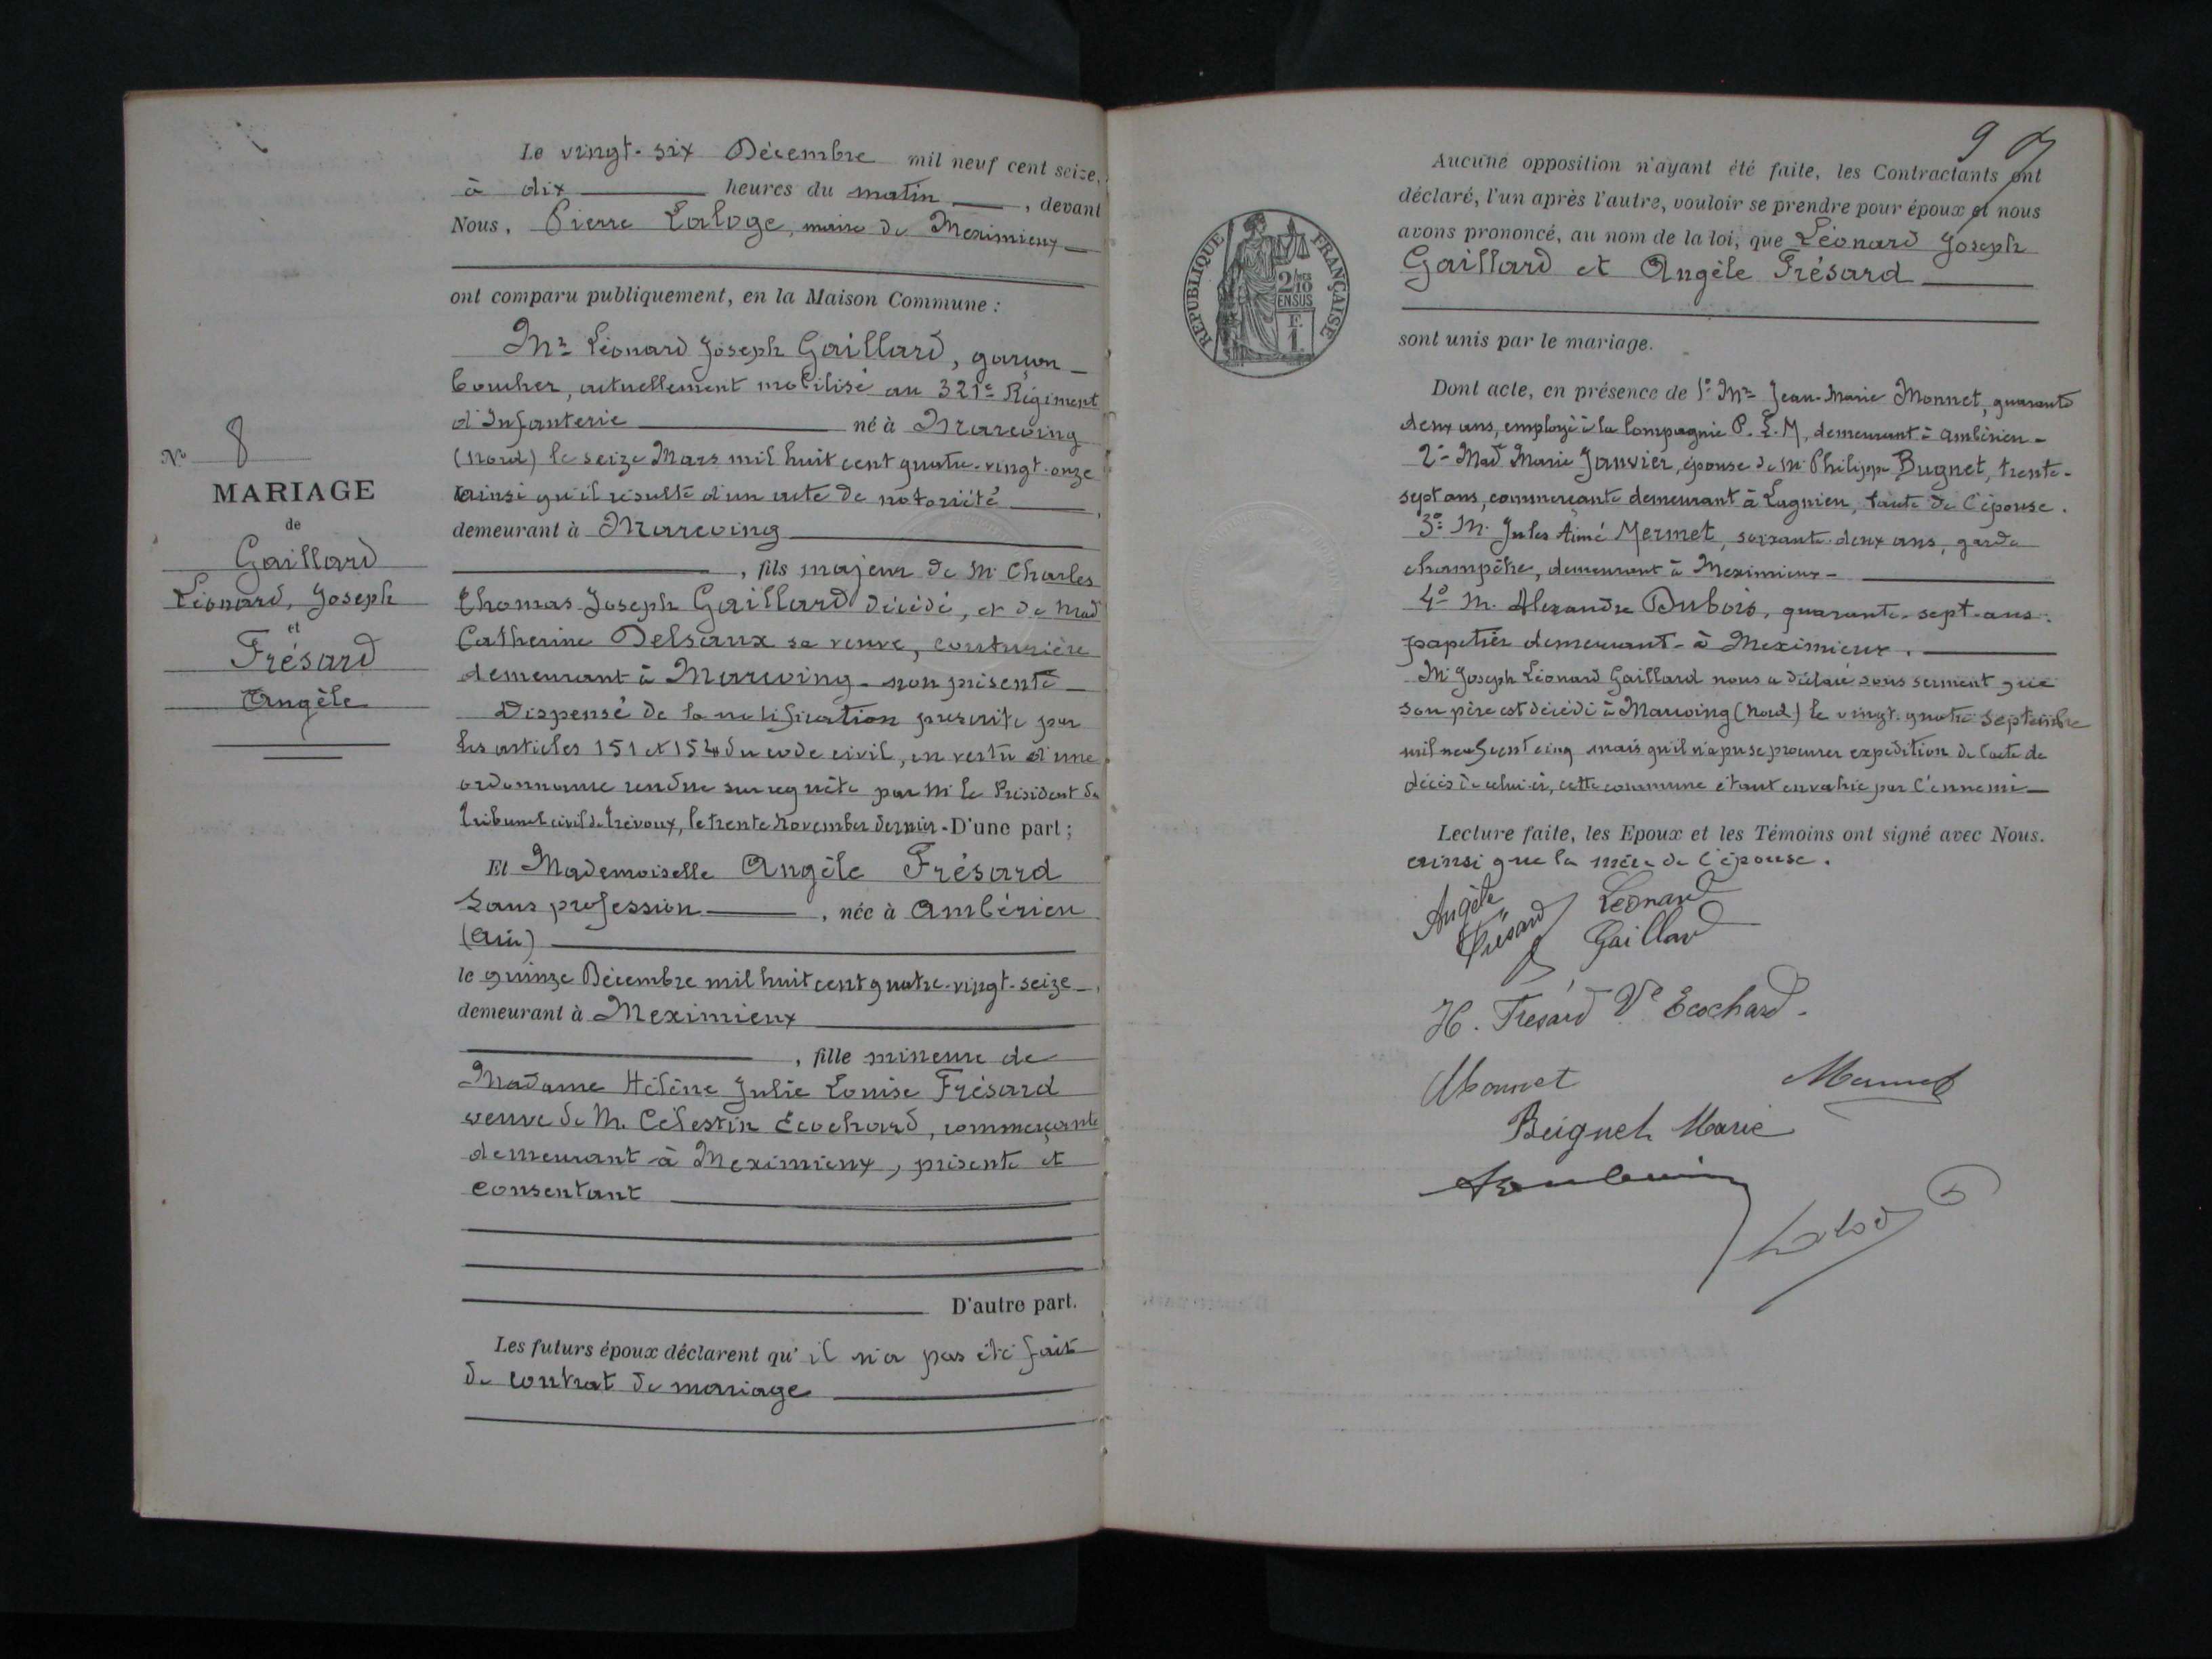 Nº 8
MARIAGE
de
Gaillard
Léonard, Joseph
et
Frésard
Angèle
Le vingt-six Décembre mil neuf cent seize,
à dix heures du matin, devant
Nous, Pierre Laloge, maire de Meximieux
ont comparu publiquement, en la Maison Commune :
Mr Léonard Joseph Gaillard, garçon
boucher, actuellement mobilisé au 321e Régiment
d'Infanterie né à Marcoing
(Nord) le seize Mars mil huit cent quatre-vingt-onze
ainsi qu'il résulte d'un acte de notoriété,
demeurant à Marcoing
, fils majeur de Mr Charles
Thomas Joseph Gaillard décédé, et de Mad
Catherine Delsaux sa veuve, couturière
demeurant à Marcoing non présente
Dispensé de la notification prescrite par
les articles 151 et 154 du code civil, en vertu d'une
ordonnance rendue sur requête par Mr le Président du
Tribunal civil de Trévoux, le trente November dernier - D'une part ;
Et Mademoiselle Angèle Frésard
sans profession, née à Ambérieu
(Ain)
le quinze Décembre mil huit cent quatre-vingt-seize,
demeurant à Meximieux
, fille mineure de
Madame Hélène Julie Louise Frésard
veuve de M. Célestin Ecochard, commerçante
demeurant à Meximieux, présente et
consentant
D'autre part.
Les futurs époux déclarent qu'il n'a pas été fait
de contrat de mariage
9
Aucune opposition n'ayant été faite, les Contractants ont
déclaré, l'un après l'autre, vouloir se prendre pour époux et nous
avons prononcé, au nom de la loi, que Léonard Joseph
Gaillard et Angèle Frésard
sont unis par le mariage.
RÉPUBLIQUE FRANÇAISE
2/10
EN SUS
F.
1.
Dont acte, en présence de 1º Mr Jean-Marie Monnet, quarante
deux ans, employé à la Compagnie P. L. M, demeurant à Ambérieu -
2º Mad Marie Janvier, épouse de Mr Philippe Bugnet, trente-
sept ans, commerçante demeurant à Lagnieu, tante de l'épouse.
3º M. Jules Aimé Mermet, soixante-deux ans, garde
champêtre, demeurant à Meximieux -
4º M. Alexandre Dubois, quarante-sept-ans.
papetier demeurant à Meximieux.
Mr Joseph Léonard Gaillard nous a déclaré sous serment que
son père est décédé à Marcoing (Nord) le vingt-quatre Septembre
mil neuf cent cinq mais qu'il n'a pu se procurer expédition de l'acte de
décès de celui-ci, cette commune étant envahie par l'ennemi -
Lecture faite, les Epoux et les Témoins ont signé avec Nous.
ainsi que la mère de l'épouse.
Angèle Frésard
Léonard Gaillard
H. Frésard Ve Ecochard.
Monnet
Mermet
Beignet Marie